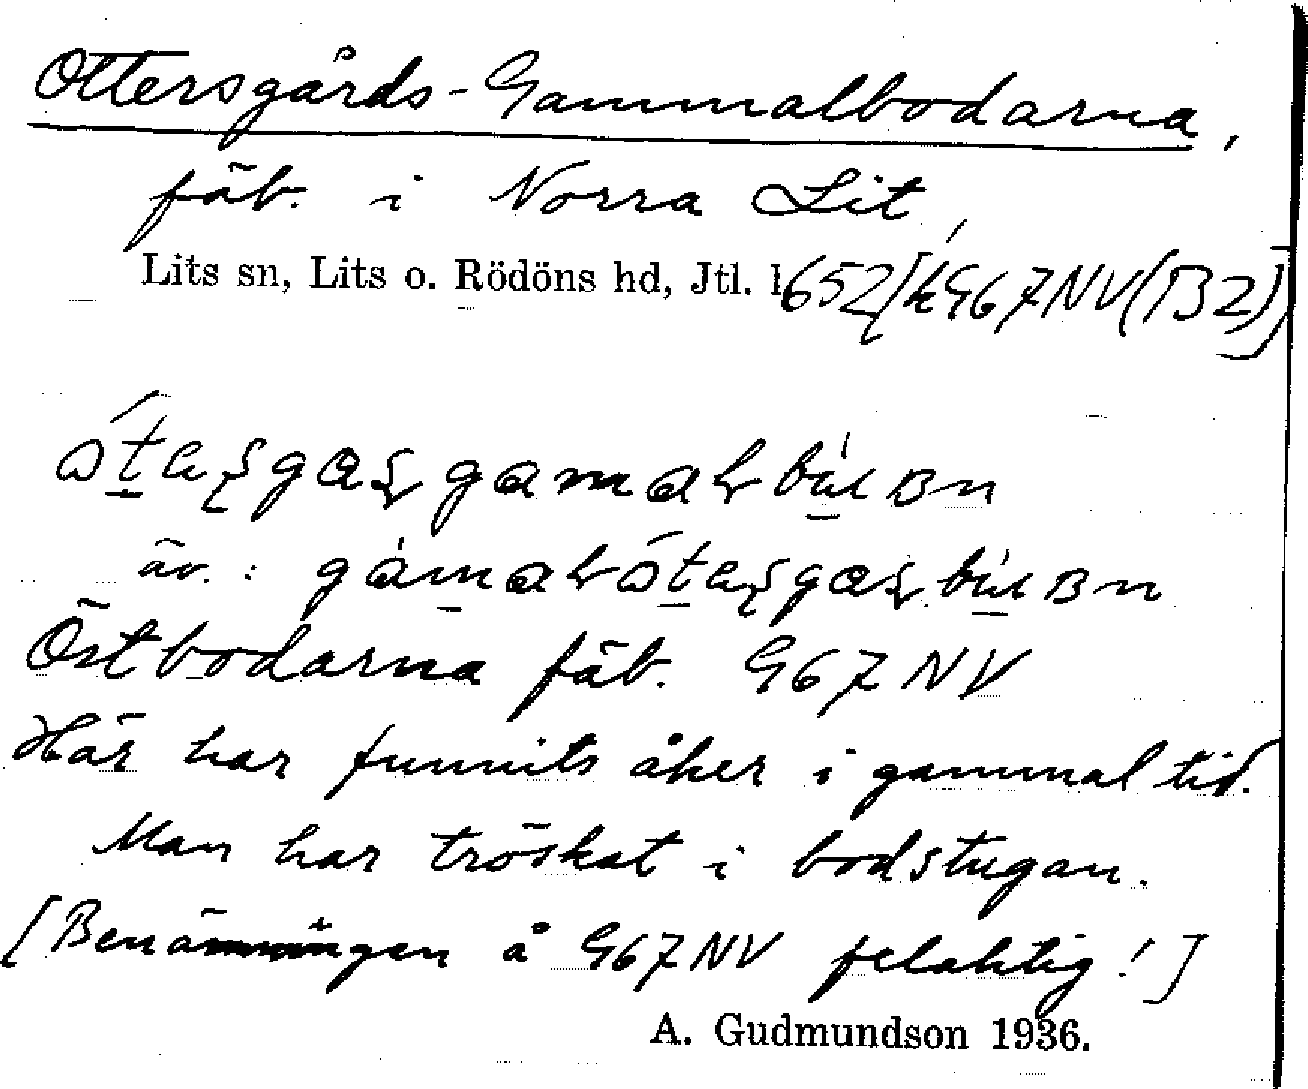 Ottersgårds-Gammalbodarna,
fäb. i Norra Lit,
Lits sn, Lits o. Rödöns hd, Jtl. l 652 [k G67NV(B2)]
äv.:
Östbodarna fäb. G67NV
Här har funnits åker i gammal tid.
Man har tröskat i bodstugan.
[Benämningen å G67NV felaktig!]
A. Gudmundson 1936.